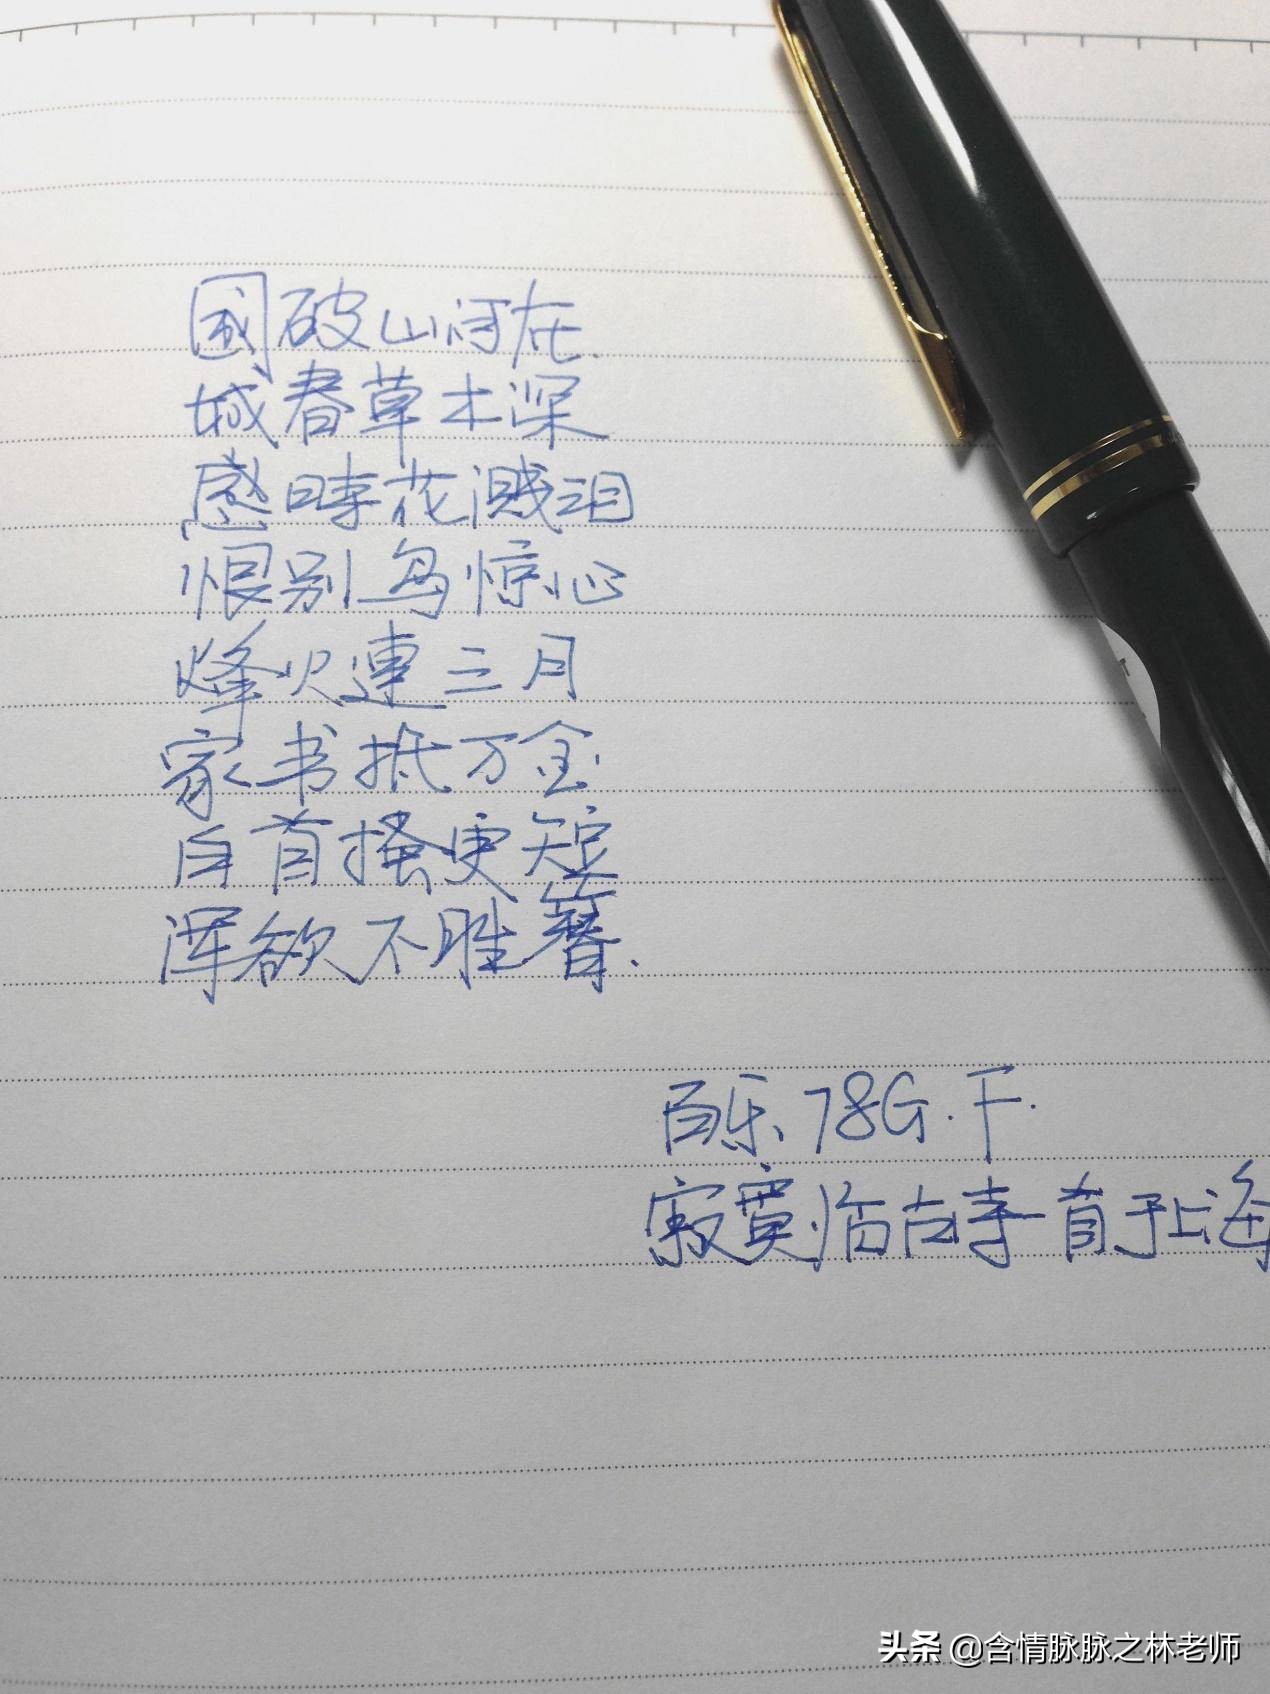 國破山河在
城春草木深
感時花溅泪
恨别鸟惊心
烽火連三月
家书抵万金
白首搔更短
浑欲不胜簪.
百乐78G.干.
寂寞临占李首于上海
头条 @含情脉脉之林老师